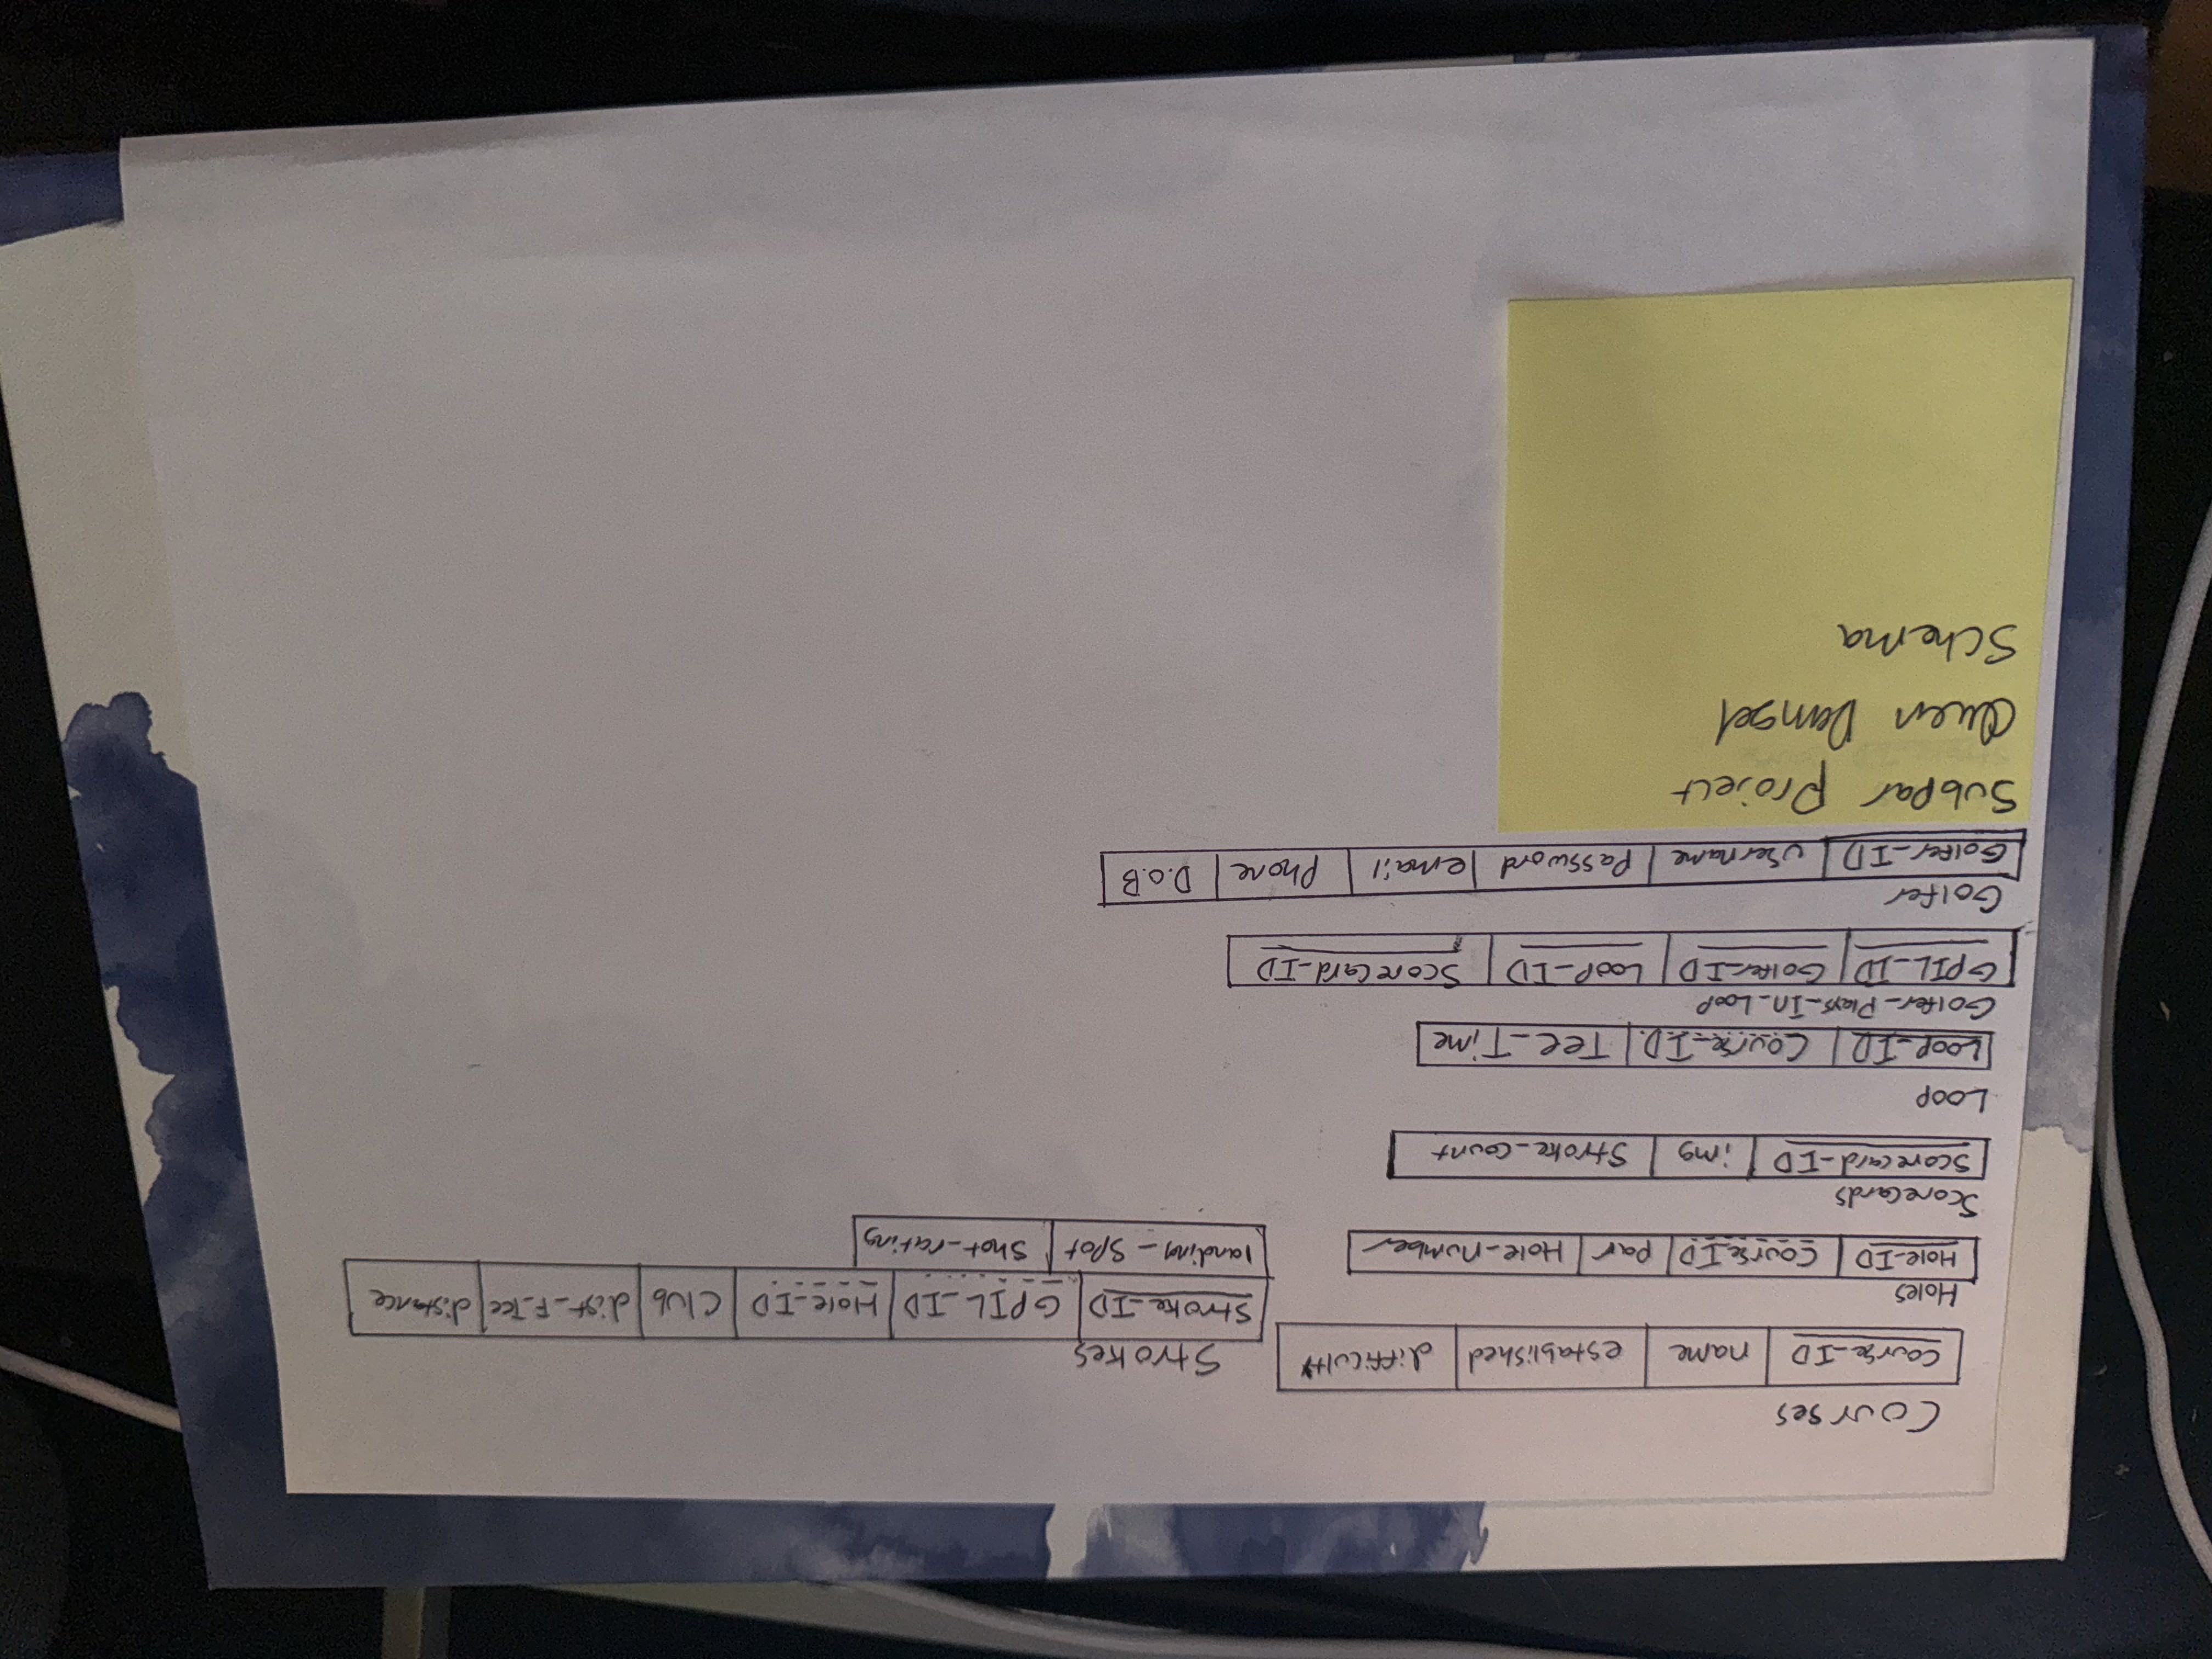 Courses
Course_ID name established difficulty
Holes
Hole_ID Course_ID par Hole_number
Scorecards
Scorecard_ID img Stroke_count
Loop
Loop_ID Course_ID Tee_Time
Golfer_Plays_In_Loop
GPIL_ID Golfer_ID Loop_ID Scorecard_ID
Golfer
Golfer_ID username Password email Phone D.O.B
Strokes
Stroke_ID GPIL_ID Hole_ID Club dist_F_Tee distance
landing_spot Shot_rating
Subpar Project
Schema